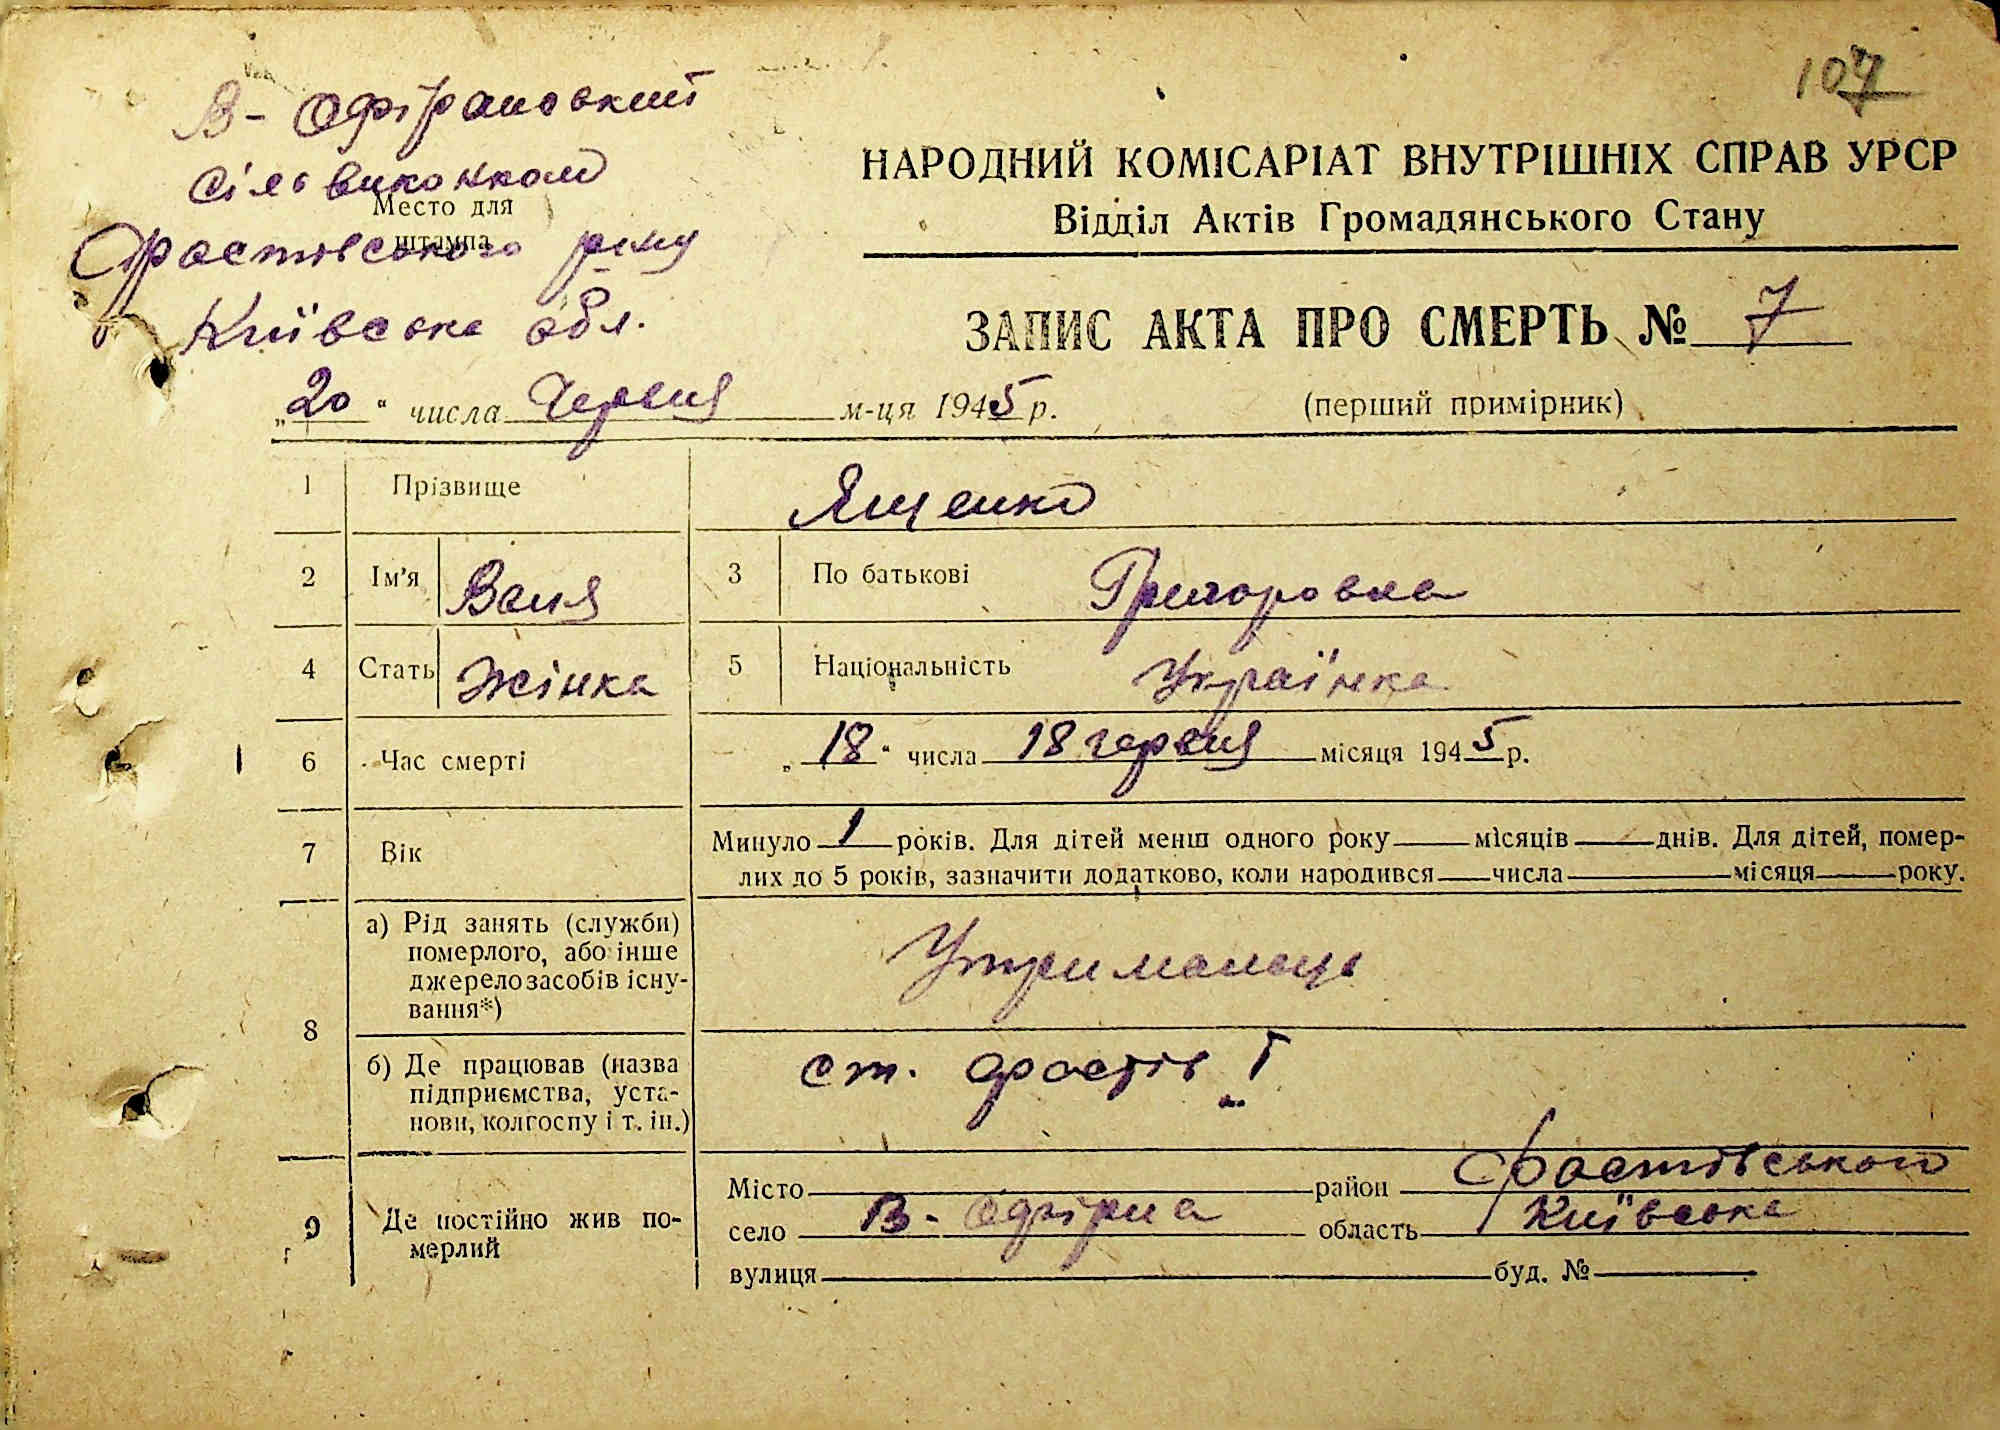 107
В- Офірнянський
Сільвиконком
Место для
штампа
Фастівського р-ну
Київська обл.
НАРОДНИЙ КОМІСАРІАТ ВНУТРІШНІХ СПРАВ УРСР
Відділ Актів Громадянського Стану
ЗАПИС АКТА ПРО СМЕРТЬ № 7
„20“ числа Червня м-ця 1945 р.
(перший примірник)
1 Прізвище Ященко
2 Ім'я Ваня 3 По батькові Григоровна
4 Стать Жінка 5 Національність Українка
6 Час смерті „18“ числа 18 червня місяця 1945 р.
7 Вік Минуло 1 років. Для дітей менш одного року місяців днів. Для дітей, помер-
лих до 5 років, зазначити додатково, коли народився числа місяця року.
8 а) Рід занять (служби)
померлого, або інше
джерело засобів існу-
вання*)
Утриманець
б) Де працював (назва
підприємства, уста-
нови, колгоспу і т. ін.)
ст. Фастів I
9 Де постійно жив по-
мерлий
Місто район Фастівського
село В- Офірна область Київська
вулиця буд. №